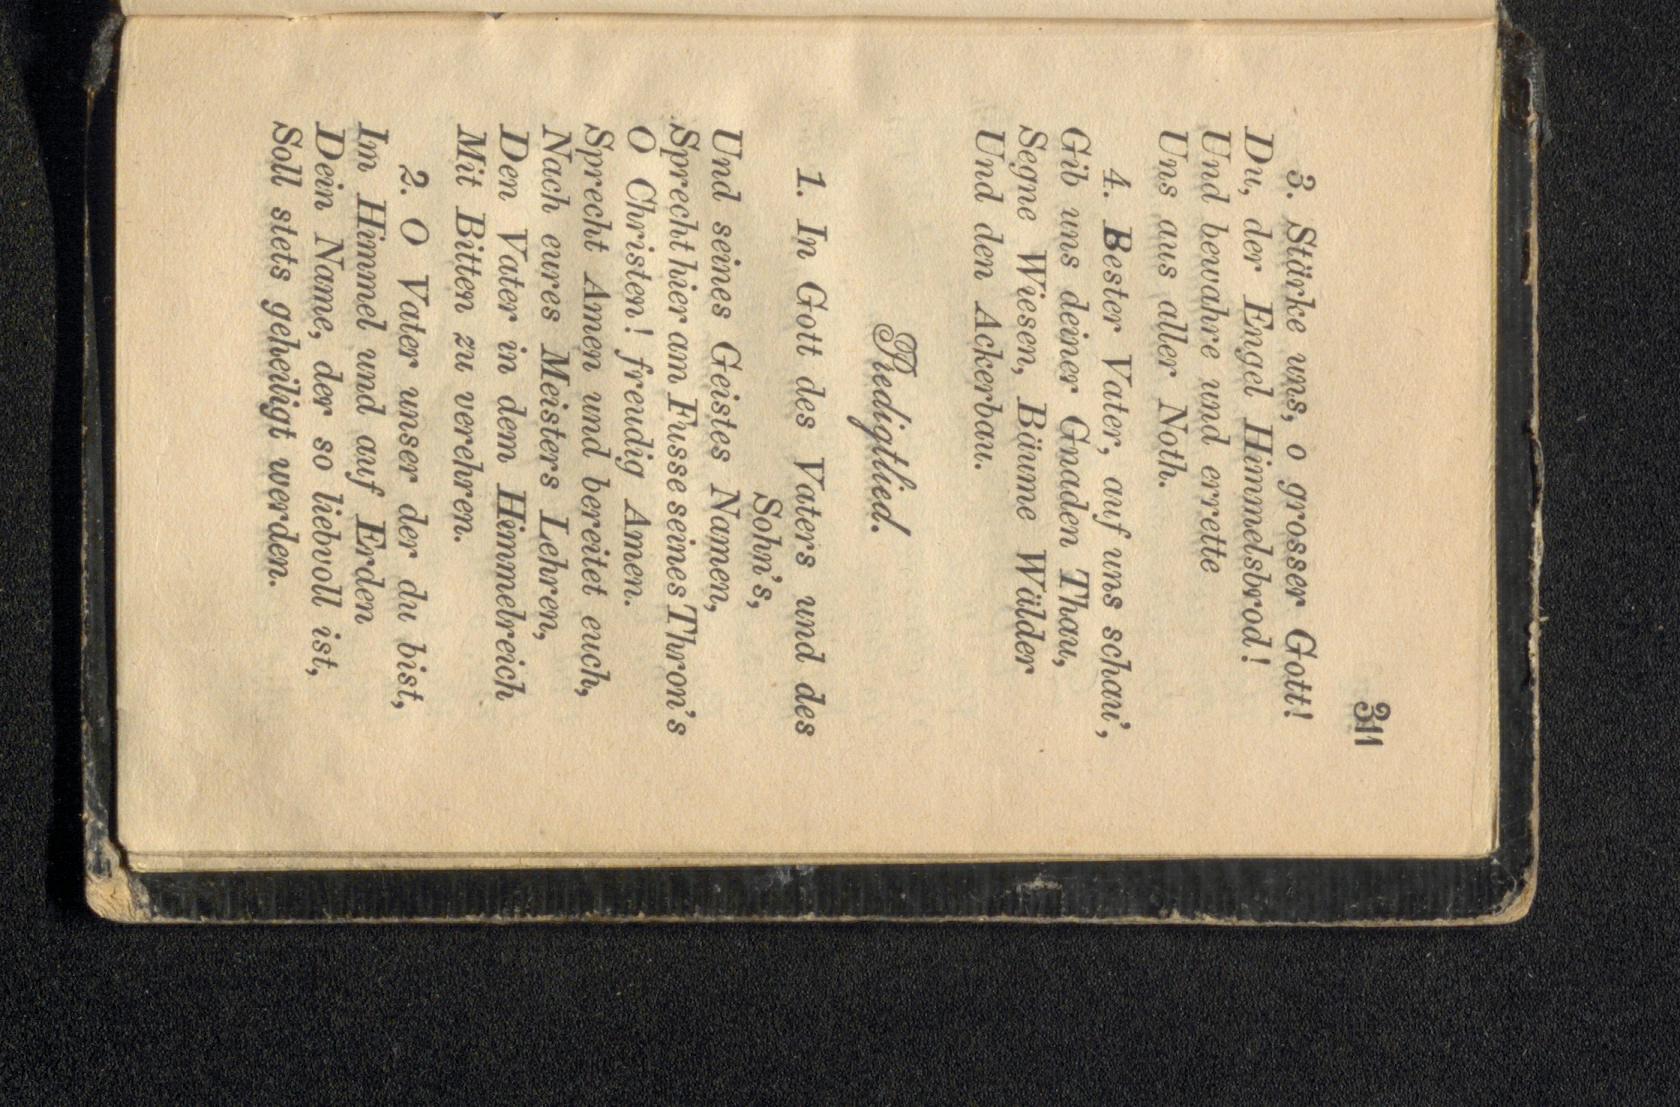 311
3. Stärke uns, o grosser Gott!
Du, der Engel Himmelsbrod!
Und bewahre und errette
Uns aus aller Noth.
4. Bester Vater, auf uns schau',
Gib uns deiner Gnaden Thau,
Segne Wiesen, Bäume Wälder
Und den Ackerbau.
Predigtlied.
1. In Gott des Vaters und des
Sohn's,
Und seines Geistes Namen,
Sprecht hier am Fusse seines Thron's
O Christen! freudig Amen.
Sprecht Amen und bereitet euch,
Nach eures Meisters Lehren,
Den Vater in dem Himmelreich
Mit Bitten zu verehren.
2. O Vater unser der du bist,
Im Himmel und auf Erden
Dein Name, der so liebvoll ist,
Soll stets geheiligt werden.